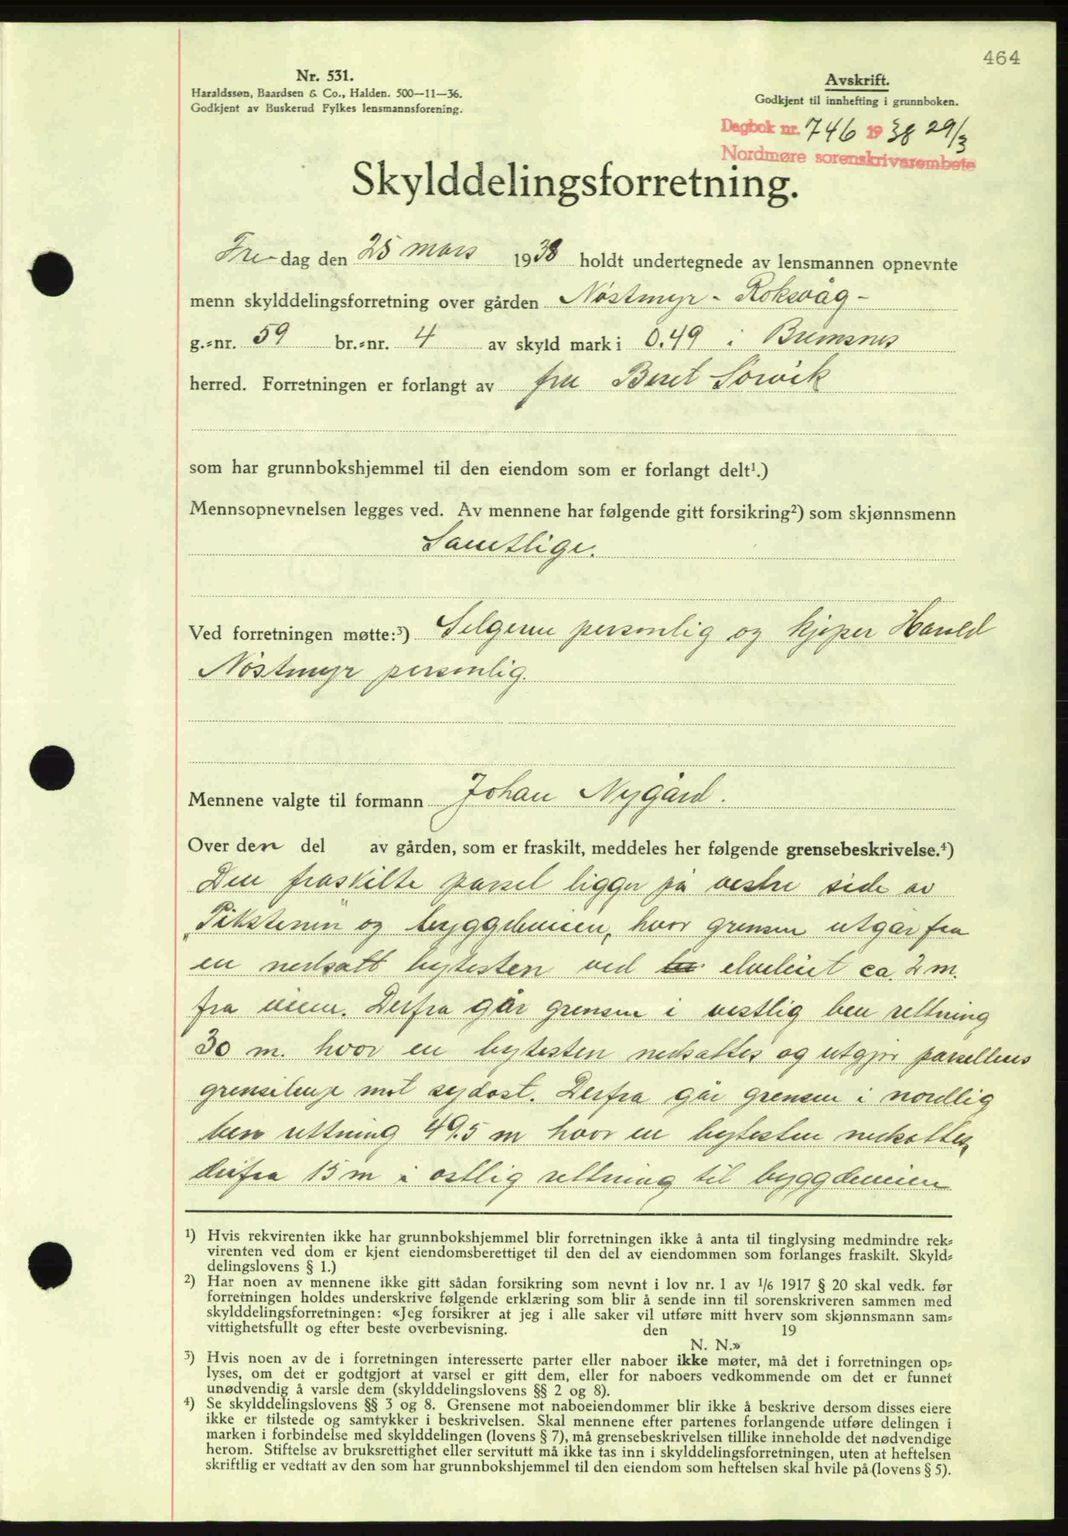 464
Nr. 531.
Haraldssøn, Baardsen & Co., Halden. 500—11—36.
Godkjent av Buskerud Fylkes lensmannsforening.
Avskrift.
Godkjent til innhefting i grunnboken.
Dagbok nr. 746 1938 29/3
Nordmøre sorenskriverembete
Skylddelingsforretning.
Fre-dag den 25 mars 1938 holdt undertegnede av lensmannen opnevnte
menn skylddelingsforretning over gården Nøstmyr - Roksvåg -
g.=nr. 59 br.=nr. 4 av skyld mark i 0.49 i Bremsnes
herred. Forretningen er forlangt av fru Beret Sørvik
som har grunnbokshjemmel til den eiendom som er forlangt delt¹.)
Mennsopnevnelsen legges ved. Av mennene har følgende gitt forsikring²) som skjønnsmenn
Samtlige.
Ved forretningen møtte:³) Selgeren personlig og kjøper Harald
Nøstmyr personlig.
Mennene valgte til formann Johan Nygård.
Over den del av gården, som er fraskilt, meddeles her følgende grensebeskrivelse.⁴)
Den fraskilte parsel ligger på vestre side av
„Pikstenen" og bygdeveien, hvor grensen utgår fra
en nedsatt bytesten ved elveleiet ca. 2 m.
fra veien. Derfra går grensen i vestlig ben rettning
30 m. hvor en bytesten nedsattes og utgjør parsellens
grenselinje mot sydost. Derfra går grensen i nordlig
ben rettning 49.5 m hvor en bytesten nedsattes,
derfra 15 m i østlig rettning til bygdeveien
¹) Hvis rekvirenten ikke har grunnbokshjemmel blir forretningen ikke å anta til tinglysing medmindre rek=
virenten ved dom er kjent eiendomsberettiget til den del av eiendommen som forlanges fraskilt. Skyld=
delingslovens § 1.)
²) Har noen av mennene ikke gitt sådan forsikring som nevnt i lov nr. 1 av 1/6 1917 § 20 skal vedk. før
forretningen holdes underskrive følgende erklæring som blir å sende inn til sorenskriveren sammen med
skylddelingsforretningen: «Jeg forsikrer at jeg i alle saker vil utføre mitt hverv som skjønnsmann sam=
vittighetsfullt og efter beste overbevisning. den 19
N. N.»
³) Hvis noen av de i forretningen interesserte parter eller naboer ikke møter, må det i forretningen op=
lyses, om det er godtgjort at varsel er gitt dem, eller for naboers vedkommende om det er funnet
unødvendig å varsle dem (skylddelingslovens §§ 2 og 8).
⁴) Se skylddelingslovens §§ 3 og 8. Grensene mot naboeiendommer blir ikke å beskrive dersom disses eiere
ikke er tilstede og samtykker i beskrivelsen. Skal mennene efter partenes forlangende utføre delingen i
marken i forbindelse med skylddelingen (lovens § 7), må grensebeskrivelsen tillike inneholde det nødvendige
herom. Stiftelse av bruksrettighet eller servitutt må ikke tas inn i skylddelingsforretningen, uten at heftelsen
skriftlig er vedtatt av den som har grunnbokshjemmel til den eiendom som heftelsen skal hvile på (lovens § 5).